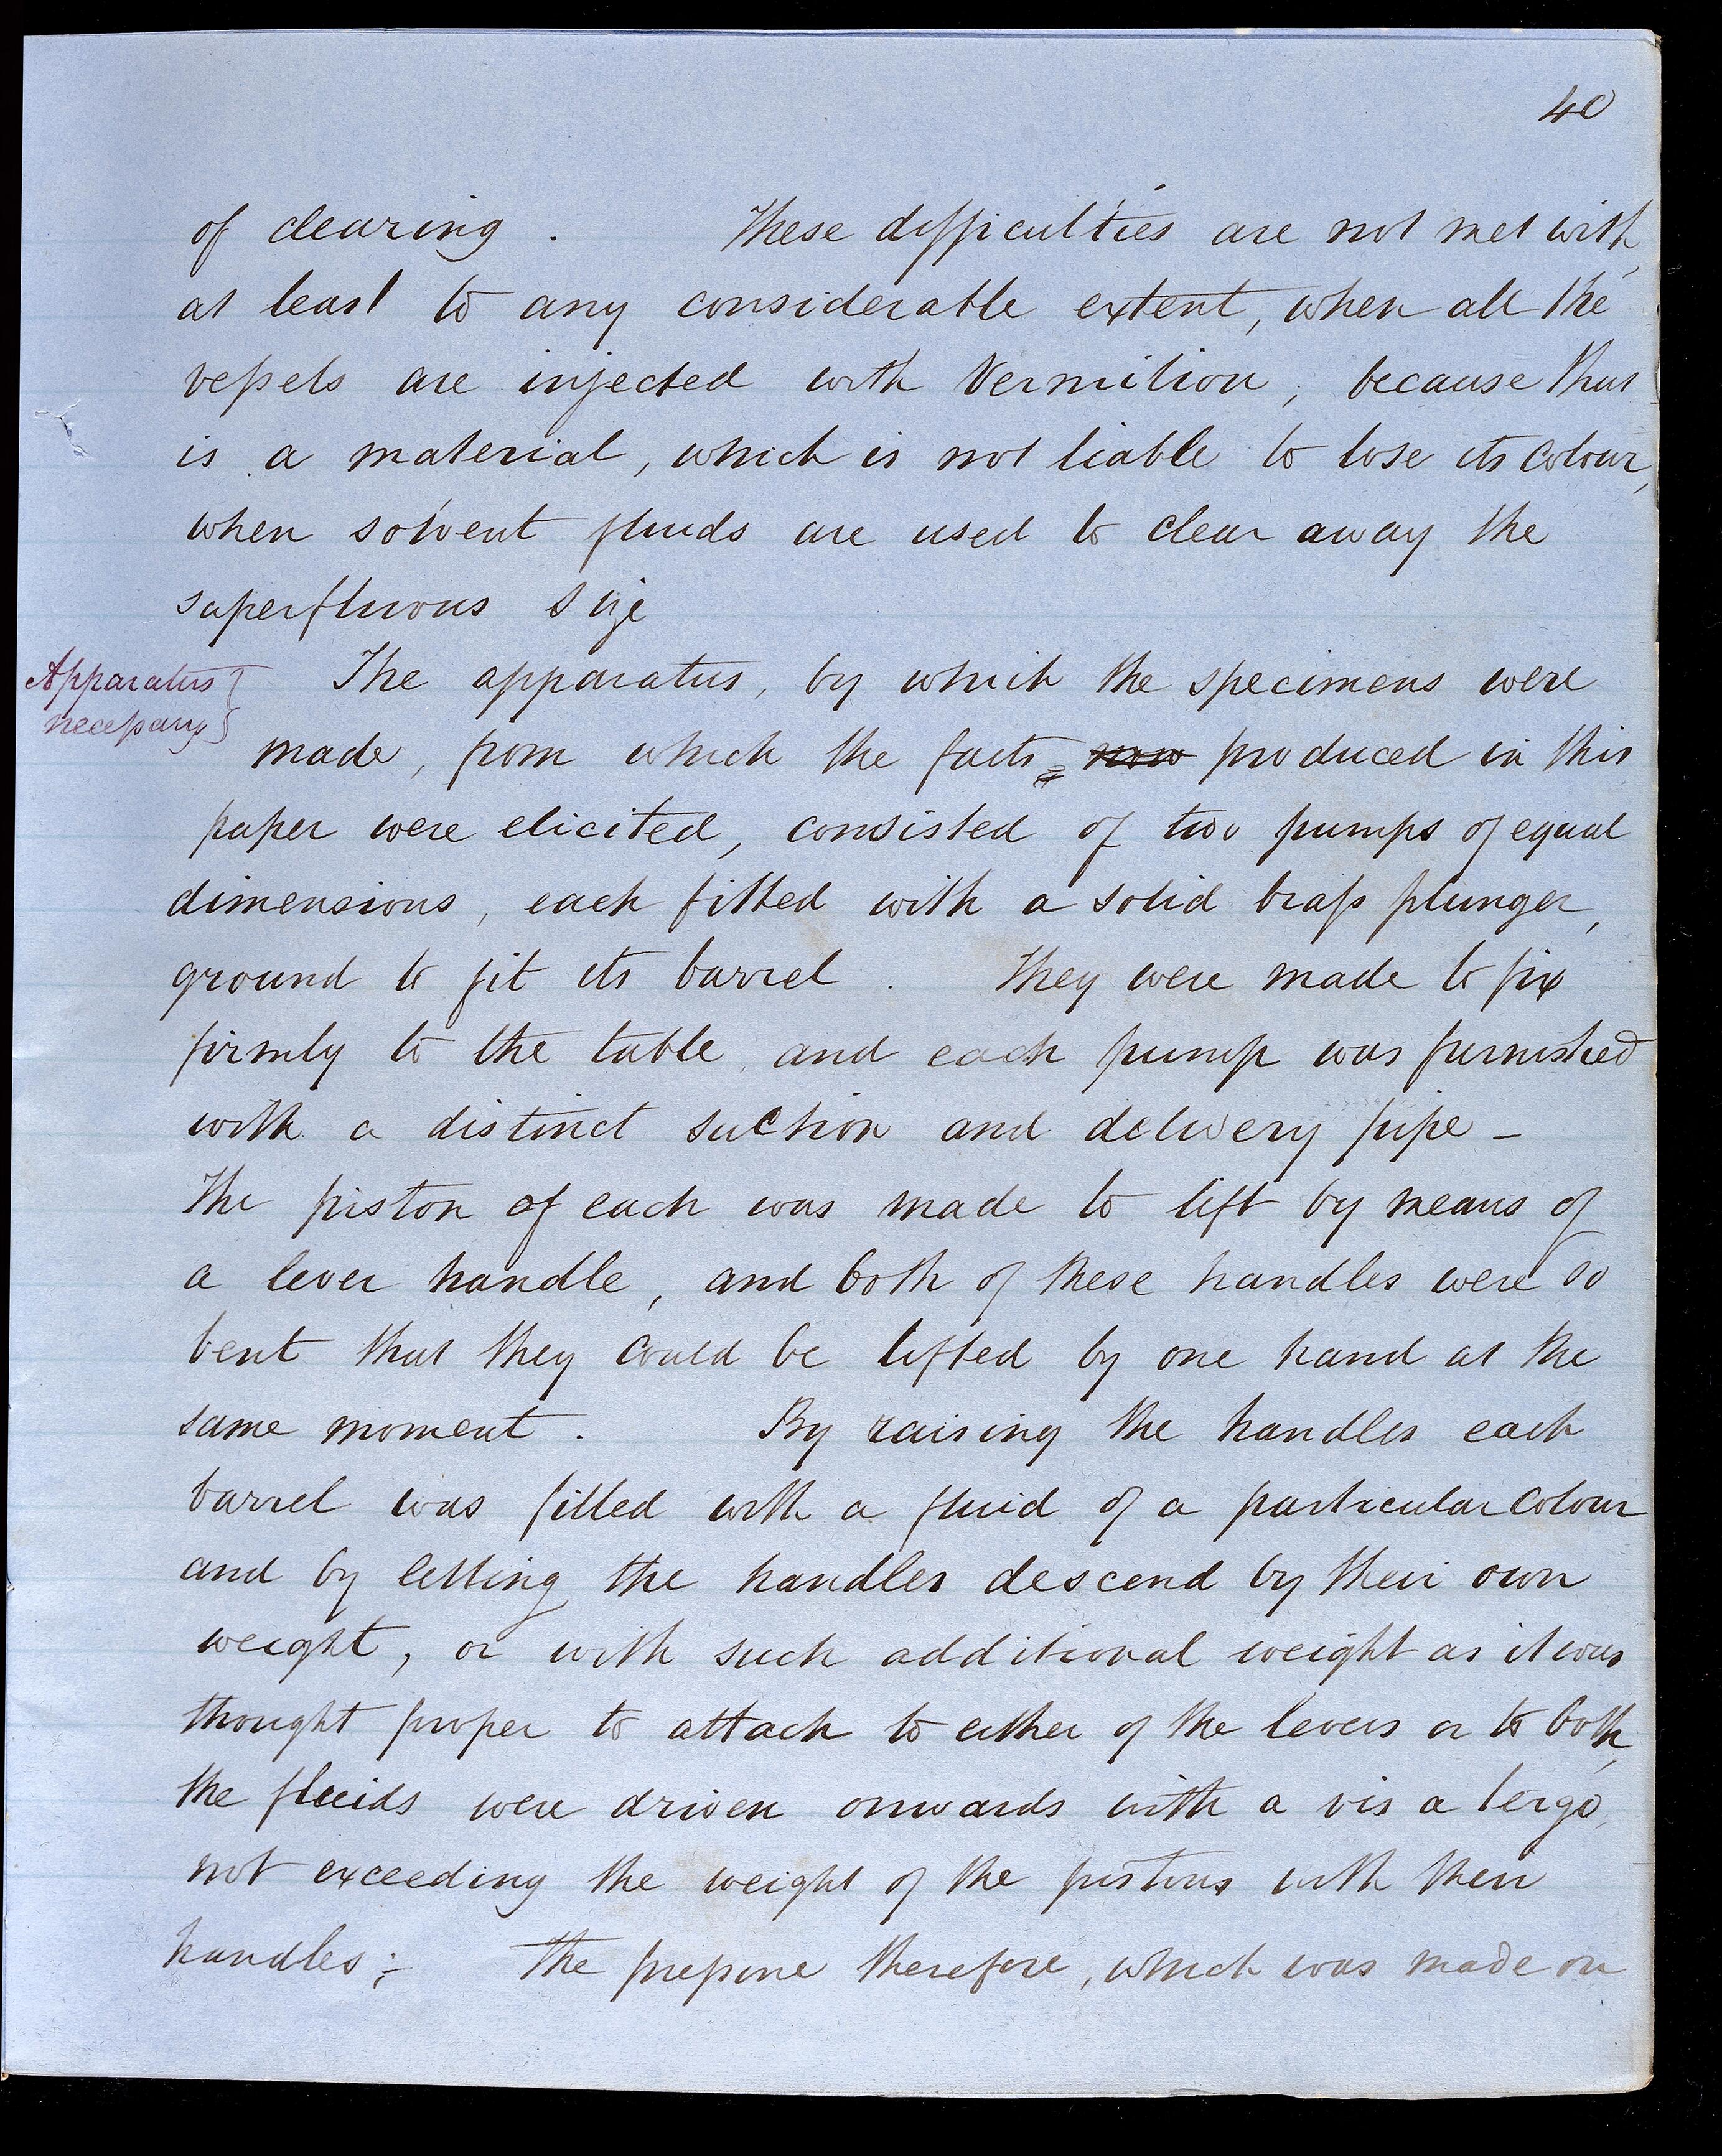 40
of clearing . These difficulties are not met with,
at least to any considerable extent, when all the
vessels are injected with Vermilion, because that
is a material, which is not liable to lose its colour,
when solvent fluids are used to clear away the
superfluous size
Apparatus
necessary
The apparatus, by which the specimens were
made, from which the facts = now produced in this
paper were elicited, consisted of two pumps of equal
dimensions, each fitted with a solid brass plunger,
ground to fit its barrel . They were made to fix
firmly to the table, and each pump was furnished
with a distinct suction and delivery pipe –
The piston of each was made to lift by means of
a lever handle, and both of these handles were so
bent that they could be lifted by one hand at the
same moment . By raising the handles each
barrel was filled with a fluid of a particular colour
and by letting the handles descend by their own
weight, or with such additional weight as it was
thought proper to attach to either of the levers or to both,
the fluids were driven onwards with a vis a tergo,
not exceeding the weight of the pistons with their
handles; – The pressure therefore, which was made on